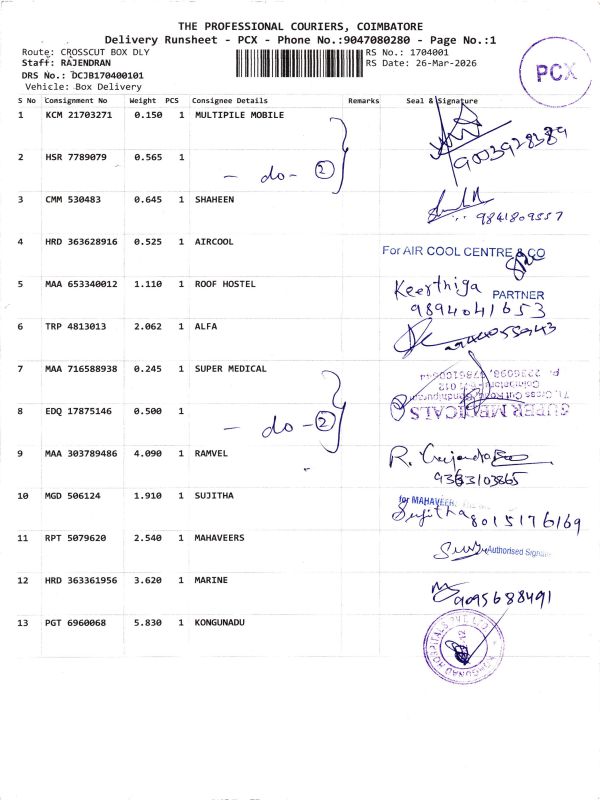 THE PROFESSIONAL COURIERS, COIMBATORE
Delivery Runsheet - PCX - Phone No.:9047080280 - Page No.:1
Route: CROSSCUT BOX DLY RS No.: 1704001
Staff: RAJENDRAN RS Date: 26-Mar-2026
DRS No.: DCJB170400101
Vehicle: Box Delivery
PCX
S No Consignment No Weight PCS Consignee Details Remarks Seal & Signature
1 KCM 21703271 0.150 1 MULTIPILE MOBILE
9003928389
2 HSR 7789079 0.565 1
- do - 2
3 CMM 530483 0.645 1 SHAHEEN
9841809557
4 HRD 363628916 0.525 1 AIRCOOL
For AIR COOL CENTRE & CO
5 MAA 653340012 1.110 1 ROOF HOSTEL
Keerthiga PARTNER
9894041653
6 TRP 4813013 2.062 1 ALFA
7 MAA 716588938 0.245 1 SUPER MEDICAL
8 EDQ 17875146 0.500 1
SUPER MEDICALS
- do - 2
9 MAA 303789486 4.090 1 RAMVEL
R.
10 MGD 506124 1.910 1 SUJITHA
for MAHAVEER
Sujitha 8015176169
11 RPT 5079620 2.540 1 MAHAVEERS
Authorised
12 HRD 363361956 3.620 1 MARINE
9095688491
13 PGT 6960068 5.830 1 KONGUNADU